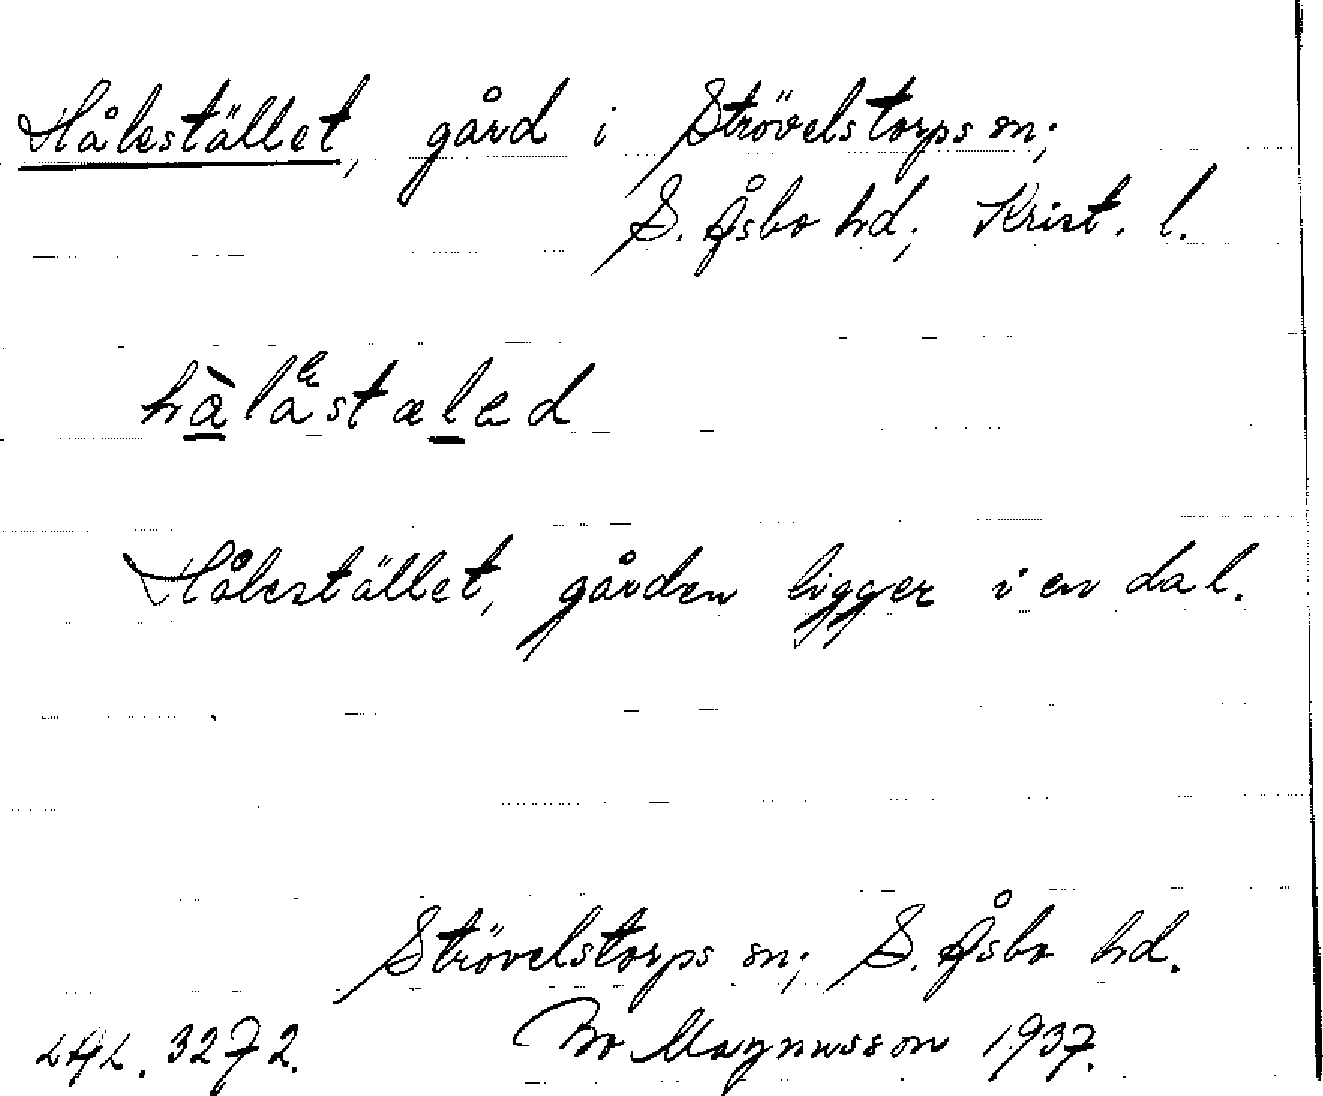 Hålestället, gård i Strövelstorps sn;
S. Åsbo hd; Krist. l.
hàlåestæled
Hålestället, gården ligger i en dal.
Strövelstorps sn; S. Åsbo hd.
LAL. 3272. Bo Magnusson 1937.